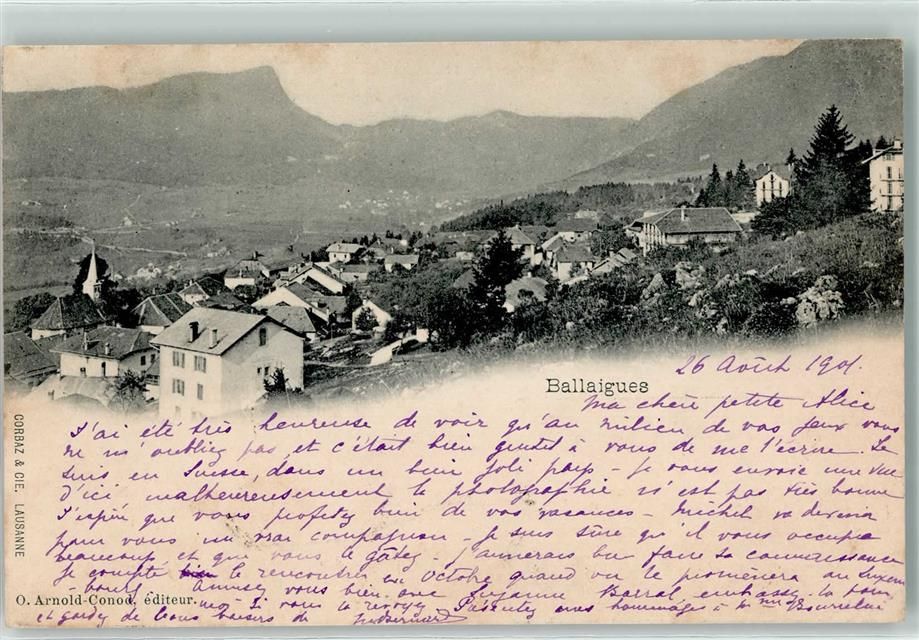 Ballaigues
26 Août 1901.
Ma chère petite Alice
J'ai été très heureuse de voir qu'au milieu de vos jeux vous
ne m'oubliez pas et c'était bien gentil à vous de me l'écrire. Je
suis en Suisse, dans un bien joli pays - je vous envoie une vue
d'ici malheureusement la photographie n'est pas très bonne
J'espère que vous profitez bien de vos vacances - Michel va devenir
pour vous un vrai compagnon - je suis sûre qu'il vous occupe
beaucoup et que vous le gâtez - aimerais faire sa connaissance
Je compte le rencontrer en Octobre quand on le promènera au Luxem
- bourg. Amusez vous bien avec Suzanne Barral, embrassez la pour
moi si vous la revoyez Présentez mes hommages à
et gardez de bons baisers de
CORBAZ & CIE. LAUSANNE
O. Arnold-Conod, éditeur.